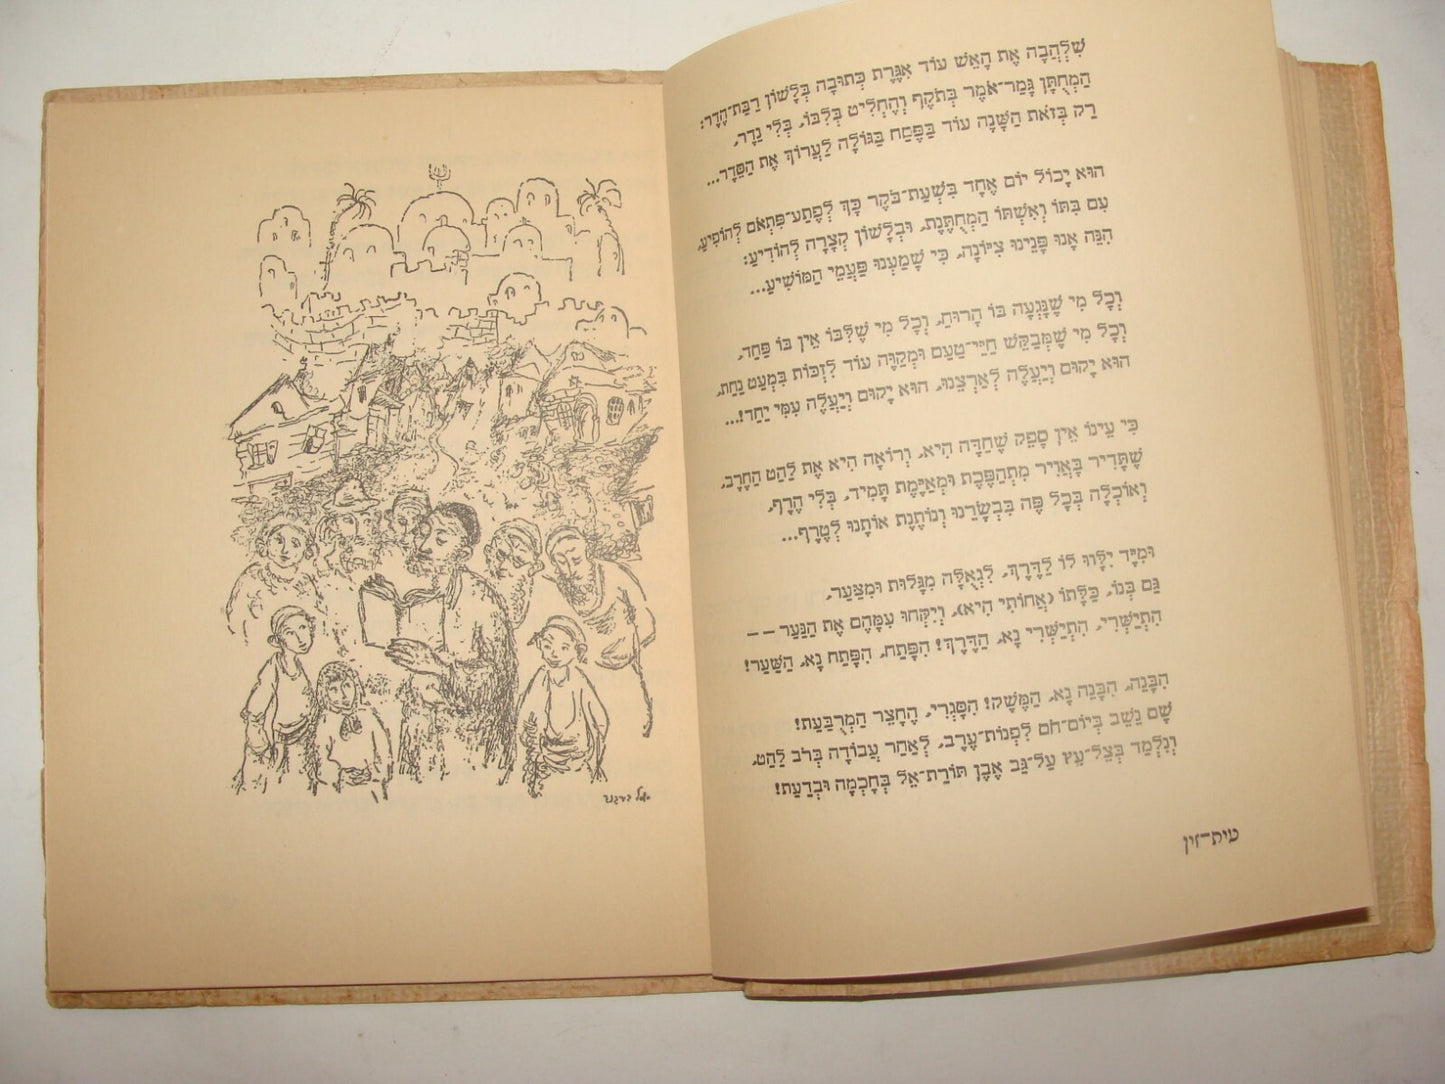 שִׁלְהֲבָה אֶת הָאֵשׁ עוֹד אִגֶּרֶת כְּתוּבָה בְּלָשׁוֹן רַבַּת־הָדָר:
הַמְחֻתָּן גָּמַר־אֹמֶר בְּתֹקֶף וְהֶחְלִיט בְּלִבּוֹ, בְּלִי נֶדֶר,
רַק בְּזֹאת הַשָּׁנָה עוֹד בַּפֶּסַח בַּגּוֹלָה לַעֲרוֹךְ אֶת הַסֵּדֶר...
הוּא יָכוֹל יוֹם אֶחָד בִּשְׁעַת־בֹּקֶר כָּךְ לְפֶתַע־פִּתְאֹם לְהוֹפִיעַ,
עִם בִּתּוֹ וְאִשְׁתּוֹ הַמְחֻתֶּנֶת, וּבְלָשׁוֹן קְצָרָה לְהוֹדִיעַ:
הִנֵּה אָנוּ פָּנֵינוּ צִיּוֹנָה, כִּי שָׁמַעְנוּ פַּעֲמֵי הַמּוֹשִׁיעַ...
וְכָל מִי שֶׁנָּגְעָה בּוֹ הָרוּחַ, וְכָל מִי שֶׁלִּבּוֹ אֵין בּוֹ פַּחַד,
וְכָל מִי שֶׁמְּבַקֵּשׁ חַיֵּי־טַעַם וּמְקַוֶּה עוֹד לִזְכּוֹת בִּמְעַט נַחַת,
הוּא יָקוּם וְיַעֲלֶה לְאַרְצֵנוּ, הוּא יָקוּם וְיַעֲלֶה עִמִּי יַחַד!...
כִּי עֵינוֹ אֵין סָפֵק שֶׁחַדָּה הִיא, וְרוֹאָה הִיא אֶת לַהַט הַחֶרֶב,
שֶׁתָּדִיר בָּאֲוִיר מִתְהַפֶּכֶת וּמְאַיֶּמֶת תָּמִיד, בְּלִי הֶרֶף,
וְאוֹכְלָה בְּכָל פֶּה בִּבְשָׂרֵנוּ וְנוֹתֶנֶת אוֹתָנוּ לְטֶרֶף...
וּמִיָּד יִלָּווּ לוֹ לַדֶּרֶךְ, לִגְאֻלָּה מִגָּלוּת וּמִצַּעַר,
גַּם בְּנוֹ, כַּלָּתוֹ (אֲחוֹתִי הִיא), וְיִקְּחוּ עִמָּהֶם אֶת הַנַּעַר — —
הִתְיַשְּׁרִי, הִתְיַשְּׁרִי נָא, הַדֶּרֶךְ! הִפָּתַח, הִפָּתַח נָא, הַשַּׁעַר!
הִבָּנֵה, הִבָּנֵה נָא, הַמֶּשֶׁק! הִסָּגְרִי, הֶחָצֵר הַמְרֻבַּעַת!
שָׁם נֵשֵׁב בְּיוֹם־חֹם לִפְנוֹת־עֶרֶב, לְאַחַר עֲבוֹדָה בְּרֹב לַהַט,
וְנִלְמַד בְּצֵל־עֵץ עַל־גַּב אֶבֶן תּוֹרַת־אֵל בְּחָכְמָה וּבְדַעַת!
טית־זין